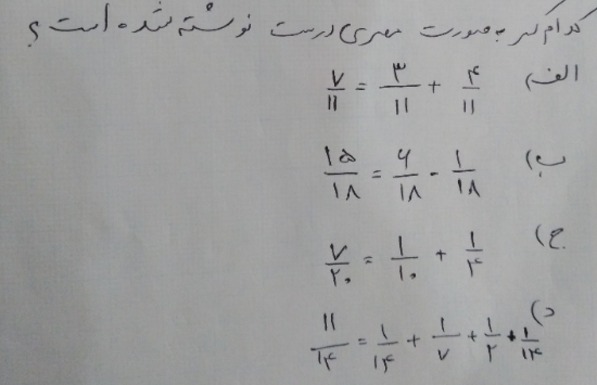 کدام کسر به صورت مصری درست نوشته شده است؟
الف) ۷/۱۱ = ۳/۱۱ + ۴/۱۱
ب) ۱۵/۱۸ = ۶/۱۸ - ۱/۱۸
ج) ۷/۲۰ = ۱/۱۰ + ۱/۴
د) ۱۱/۱۴ = ۱/۱۴ + ۱/۷ + ۱/۲ + ۱/۱۴